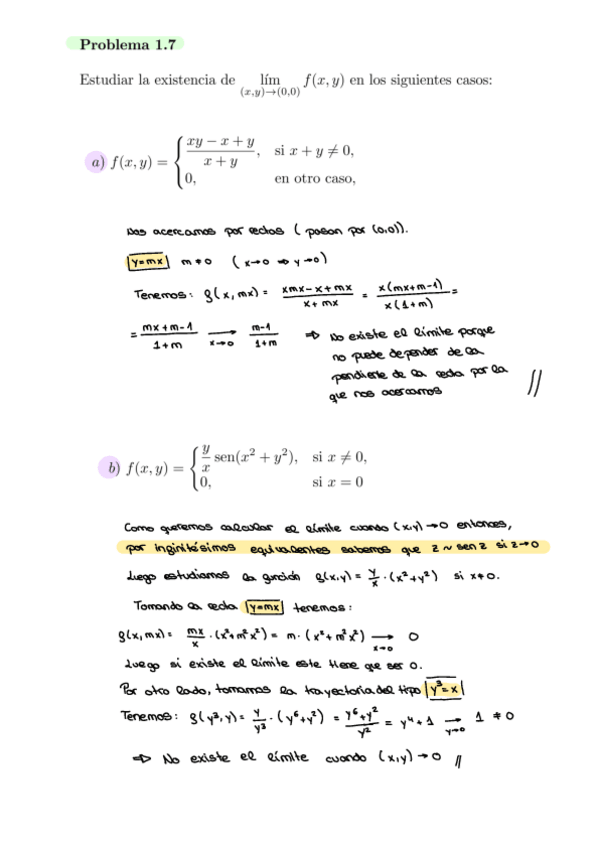 Problema 1.7
Estudiar la existencia de lím_{(x,y)→(0,0)} f(x,y) en los siguientes casos:
a) f(x,y) = { (xy − x + y)/(x + y), si x + y ≠ 0,
0, en otro caso,
Nos acercamos por rectas ( pasan por (0,0)).
y=mx m≠0 ( x→0 ⇒ y→0)
Tenemos: f(x,mx) = (xmx − x + mx)/(x + mx) = x(mx+m−1)/(x(1+m)) =
= (mx+m−1)/(1+m) →_{x→0} (m−1)/(1+m) ⇒ No existe el límite porque
no puede depender de la
pendiente de la recta por la
que nos acercamos //
b) f(x,y) = { y/x sen(x² + y²), si x ≠ 0,
0, si x = 0
Como queremos calcular el límite cuando (x,y)→0 entonces,
por infinitésimos equivalentes sabemos que z ~ sen z si z→0
Luego estudiamos la función f(x,y) = y/x · (x²+y²) si x≠0.
Tomando la recta y=mx tenemos:
f(x,mx) = mx/x · (x²+m²x²) = m · (x²+m²x²) →_{x→0} 0
Luego si existe el límite este tiene que ser 0.
Por otro lado, tomamos la trayectoria del tipo y³=x
Tenemos: f(y³,y) = y/y³ · (y⁶+y²) = (y⁶+y²)/y² = y⁴+1 →_{y→0} 1 ≠ 0
⇒ No existe el límite cuando (x,y)→0 //